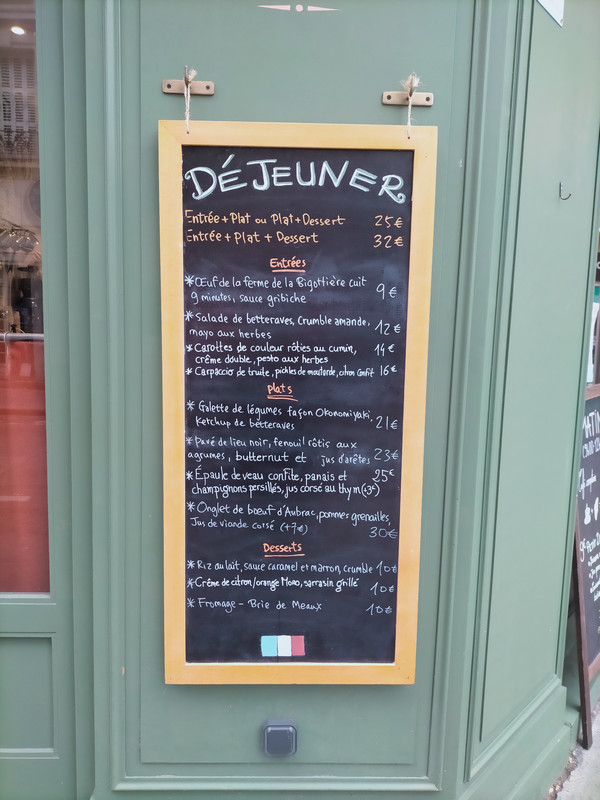 DÉJEUNER
Entrée + Plat ou Plat + Dessert 25€
Entrée + Plat + Dessert 32€
Entrées
* Œuf de la ferme de la Bigottière cuit
9 minutes, sauce gribiche 9€
* Salade de betteraves, Crumble amande,
mayo aux herbes 12€
* Carottes de couleur rôties au cumin, 14€
crème double, pesto aux herbes
* Carpaccio de truite, pickles de moutarde, citron confit 16€
Plats
* Galette de légumes façon Okonomiyaki,
Ketchup de betteraves 21€
* Pavé de lieu noir, fenouil rôtis aux
agrumes, butternut et jus d'arêtes 23€
* Épaule de veau confite, panais et 25€
champignons persillés, jus corsé au thym (+3€)
* Onglet de bœuf d'Aubrac, pommes grenailles,
Jus de viande corsé (+7€) 30€
Desserts
* Riz au lait, sauce caramel et marron, crumble 10€
* Crème de citron/orange Moro, sarrasin grillé 10€
* Fromage - Brie de Meaux 10€